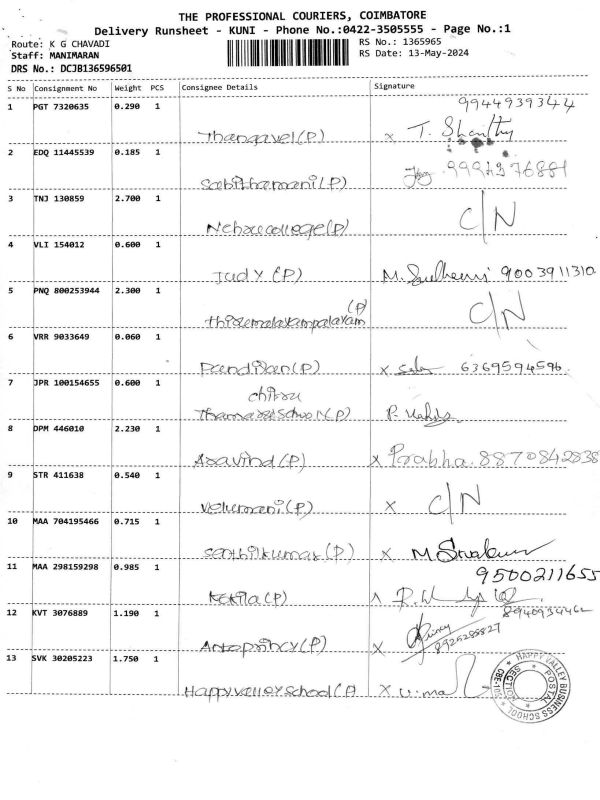 THE PROFESSIONAL COURIERS, COIMBATORE
Delivery Runsheet - KUNI - Phone No.:0422-3505555 - Page No.:1
Route: K G CHAVADI
Staff: MANIMARAN
DRS No.: DCJB136596501
RS No.: 1365965
RS Date: 13-May-2024
S No Consignment No Weight PCS Consignee Details Signature
1 PGT 7320635 0.290 1 9944939344
Thangavel(P) x T. Shanthy
2 EDQ 11445539 0.185 1
Sabithamani(P) 9994976881
3 TNJ 130859 2.700 1 C/N
Nehrucollege(P)
4 VLI 154012 0.600 1
Judy (P) M. 9003911310
5 PNQ 800253944 2.300 1 C/N
(P)
thirumalayampalayam
6 VRR 9033649 0.060 1
Pandian(P) x 6369594596
7 JPR 100154655 0.600 1
chinu
Thamarai School(P) P.
8 DPM 446010 2.230 1
Aravind(P) x Prabha. 8870842838
9 STR 411638 0.540 1 C/N
Velumani(P) x
10 MAA 704195466 0.715 1
Senthilkumar(P) x M Sivakumar
11 MAA 298159298 0.985 1 9500211655
Kokila(P)
12 KVT 3076889 1.190 1
Antoprincy(P) x 8925285827
13 SVK 30205223 1.750 1
Happyvalleyschool(P) x
HAPPY VALLEY BUSINESS SCHOOL
POSTAL SECTION
CBE-105